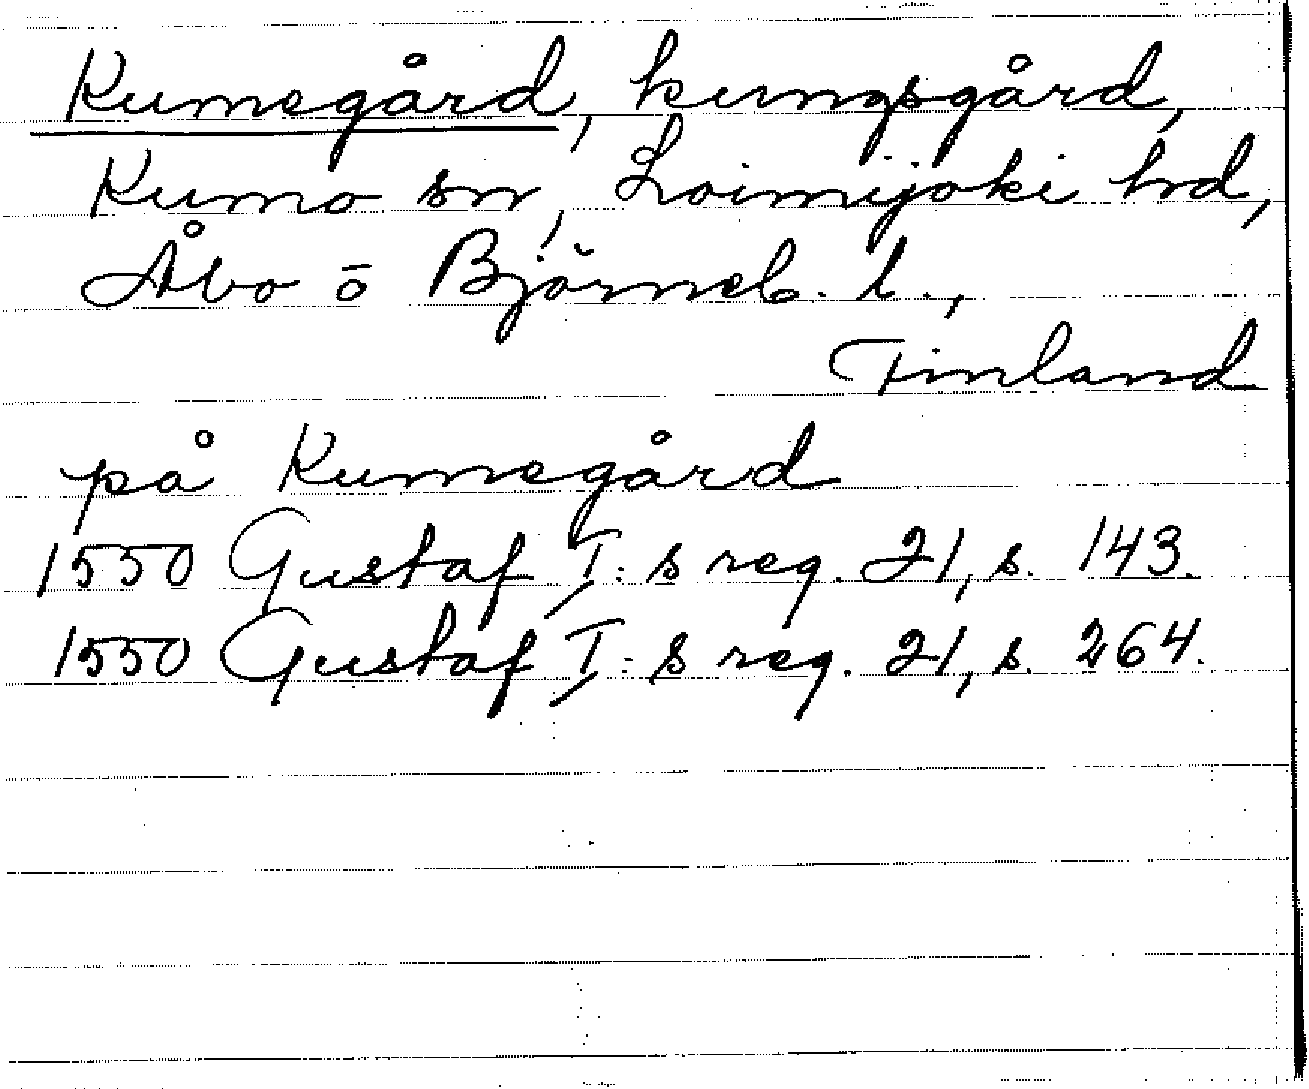 Kumegård, kungsgård,
Kumo sn, Loimijoki hd,
Åbo o Björneb. l.,
Finland
på Kumegård
1550 Gustaf I: s reg. 21, s. 143.
1550 Gustaf I: s reg. 21, s. 264.